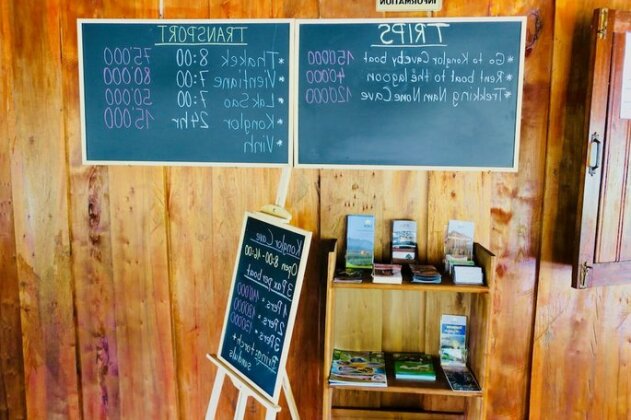 INFORMATION
TRIPS
*Go to Konglor Cave by boat 150'000
*Rent boat to the lagoon 40'000
*Trekking Nam None Cave 120'000
TRANSPORT
*Thakek 8:00 75'000
*Vientiane 7:00 80'000
*Lak Sao 7:00 50'000
*Konglor 24hr 15'000
*Vinh
Konglor Cave
Open 8:00-16:00
3 Pax per boat
1 Pers =
2 Pers =
3 Pers =
torch +
sandals